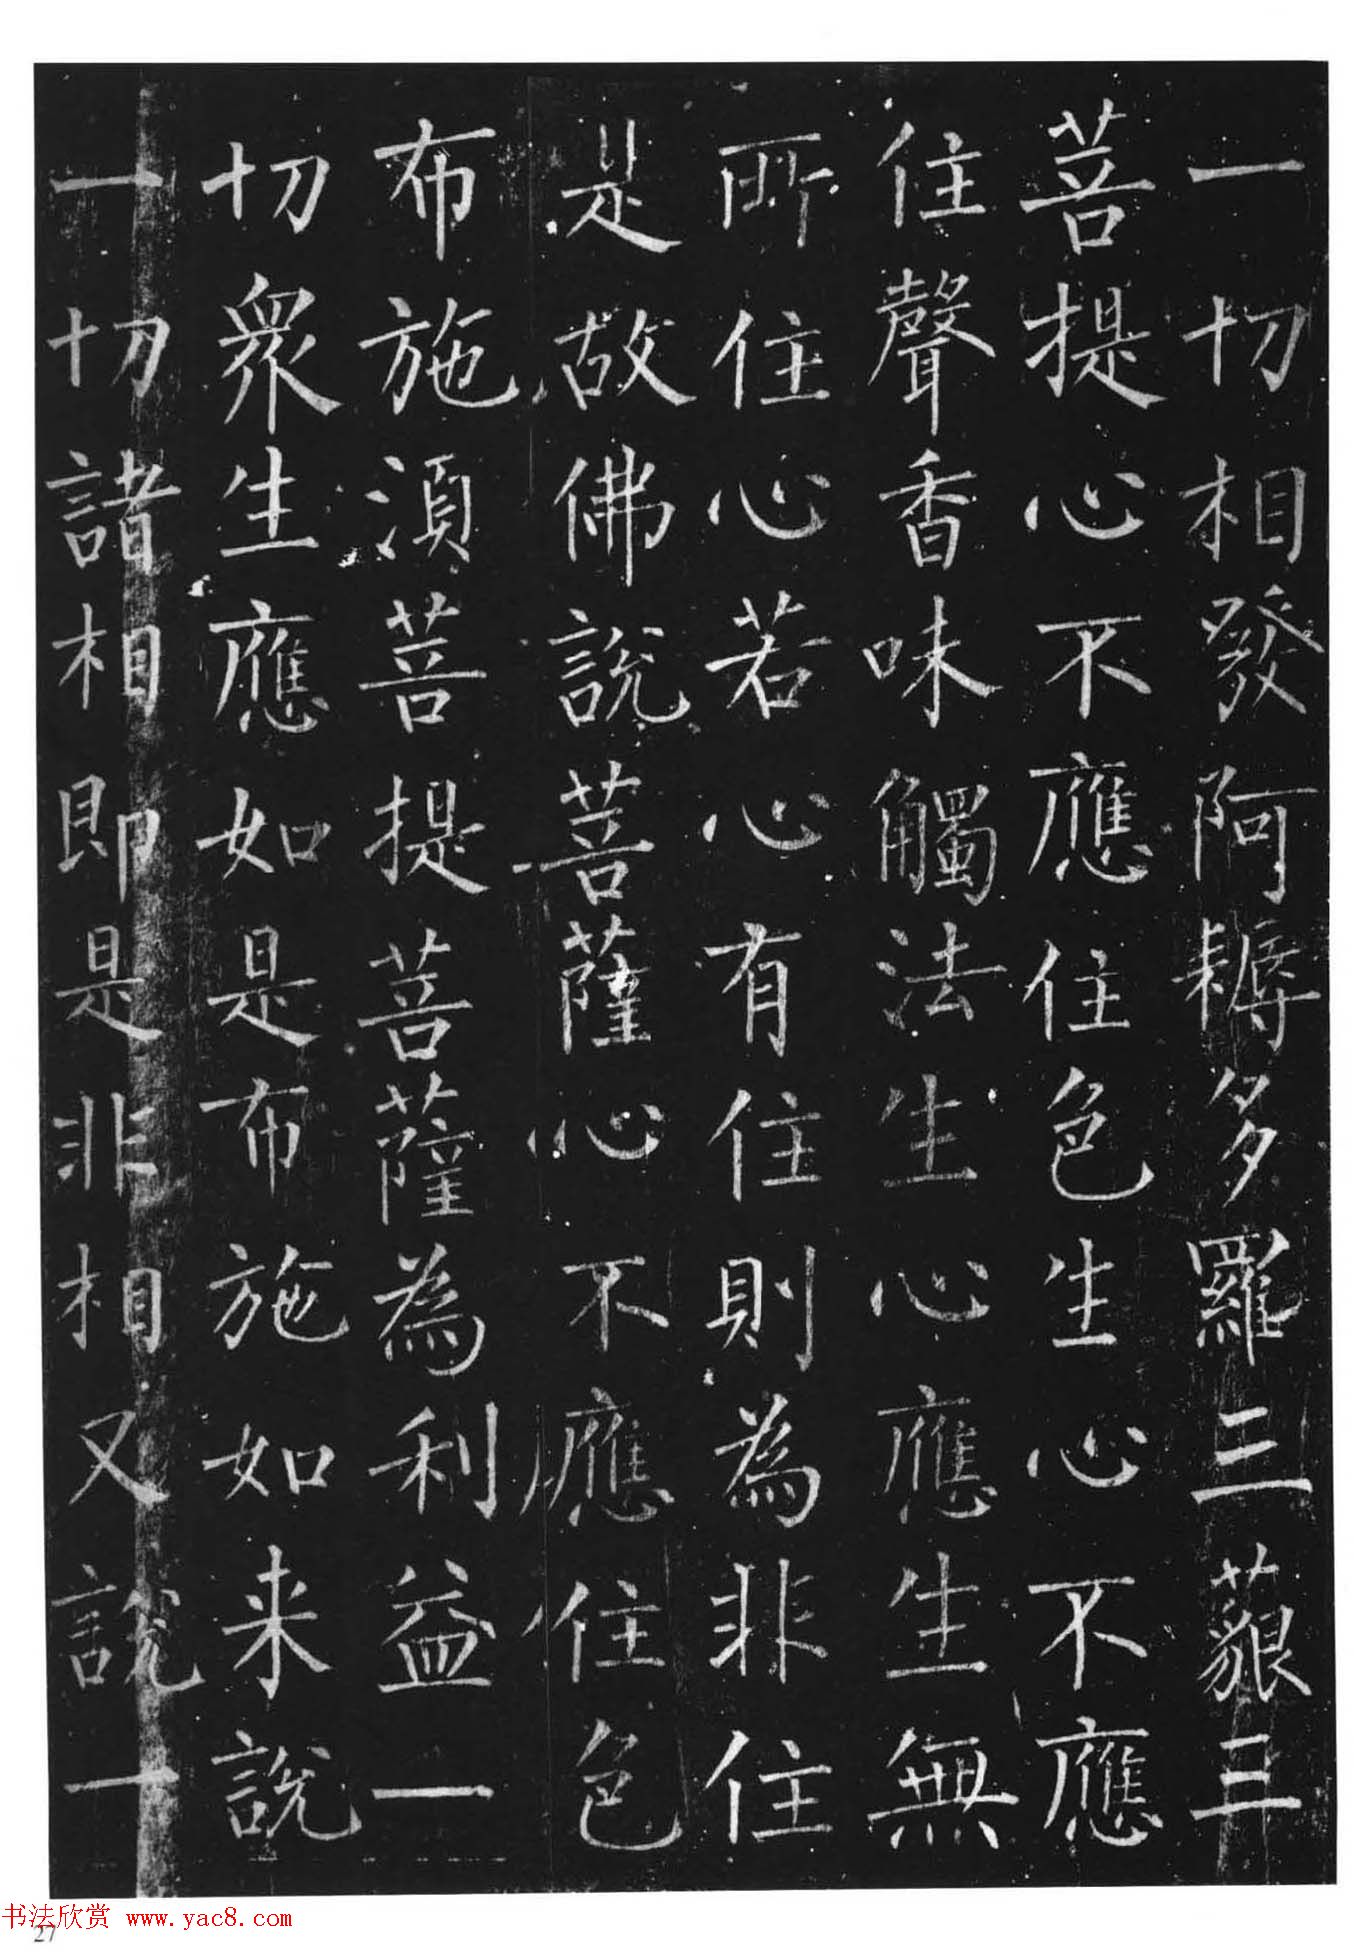 一切相發阿耨多羅三藐三
菩提心不應住色生心不應
住聲香味觸法生心應生無
所住心若心有住則為非住
是故佛說菩薩心不應住色
布施須菩提菩薩為利益一
切眾生應如是布施如来說
一切諸相即是非相又說一
书法欣赏 www.yac8.com
27